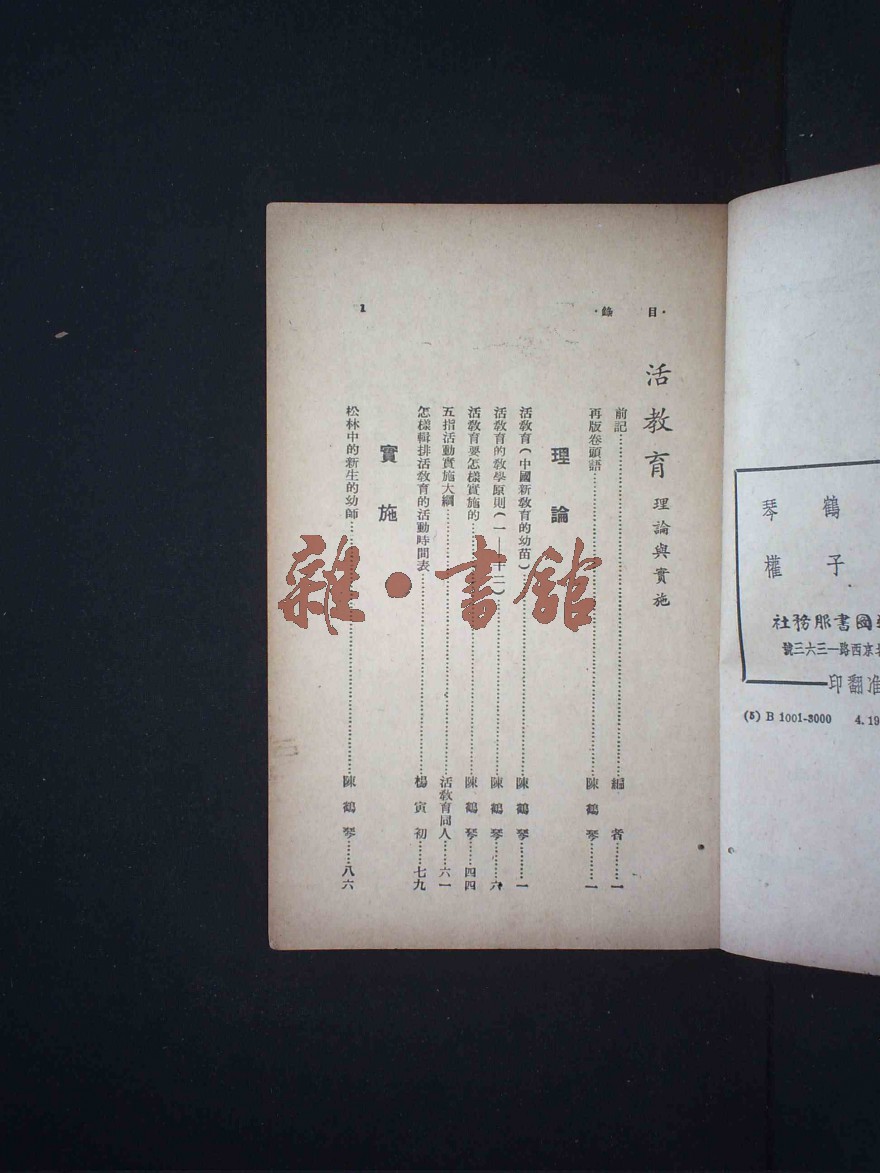 ·目錄·
1
活教育理論與實施
前記……編者……一
再版卷頭語……陳鶴琴……一
理論
活教育(中國新教育的幼苗)……陳鶴琴……一
活教育的教學原則(一—十二)……陳鶴琴……六
活教育要怎樣實施的……陳鶴琴……四四
五指活動實施大綱……活教育同人……六一
怎樣輯排活教育的活動時間表……楊寅初……七九
實施
松林中的新生的幼師……陳鶴琴……八六
雜·書館
鶴琴
子權
國書服務社
京西路一三六三號
准翻印
(5) B 1001-3000 4. 19